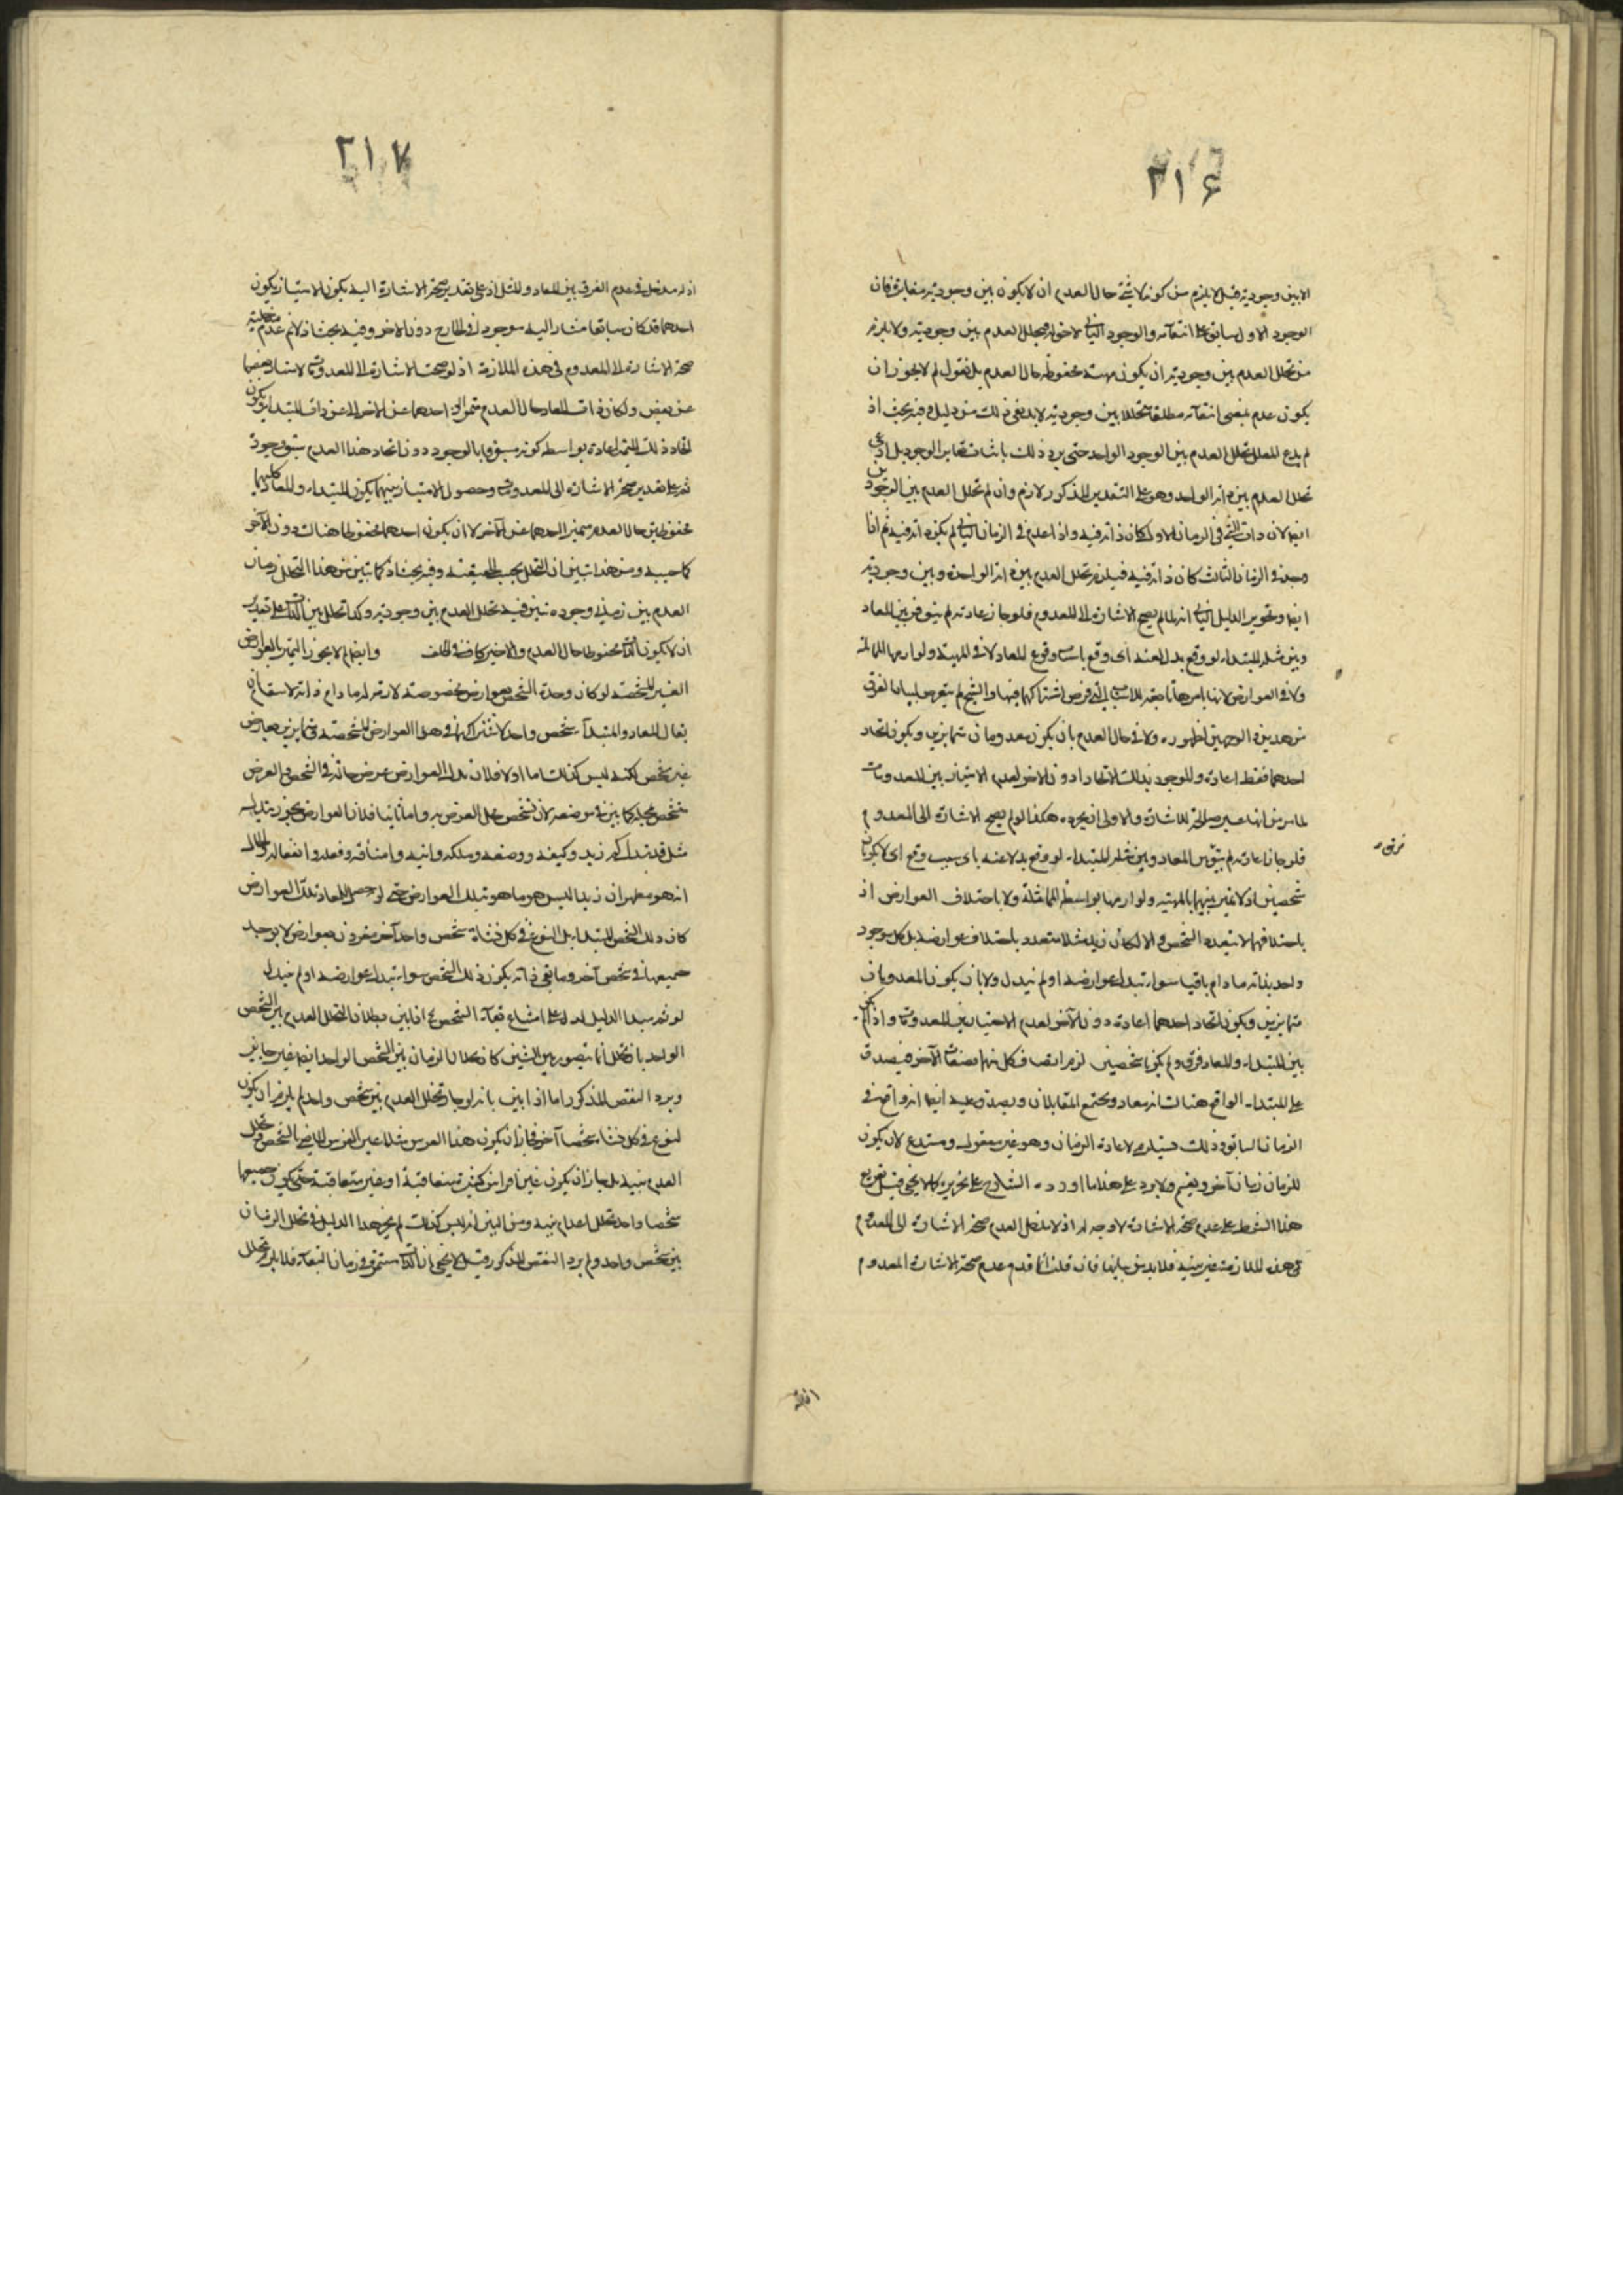 ٢١۶
الابين وجوديه قيل لا يلزم من كونه لا شئ حال العدم ان لا يكون بين وجوديه مغايرة فان
الوجود الاول سابق على انتفائه والوجود الثانى لاحق له فيتخلل العدم بين وجوديه ولا يلزم
من تخلل العدم بين وجوديه ان يكون محفوظة حال العدم بل نقول لم لا يجوز ان
يكون عدم بمعنى انتفائه مطلقا متخللا بين وجوديه لا بد لنفى ذلك من دليل وفيه بحث اذ
لم يدع المعلل تخلل العدم بين الوجود الواحد حتى يرد ذلك باثبات تغاير الوجود بل ادعى
تخلل العدم بين ذاته الواحد وهو على التقدير المذكور لازم وان لم تخلل العدم بين الوجودين
ايضا لان ذات الشئ فى الزمان الاول كان ذاته فيه واذا عدم فى الزمان الثانى لم يكن ذاته فيه ثم اذا
وجد فى الزمان الثالث كان ذاته فيه فيلزم تخلل العدم بين ذاته الواحدة وبين وجوديه
ايضا وتحرير الدليل الثانى انه لما لم يصح الاشارة الى المعدوم فلو جاز اعادته لم يبق فرق بين المعاد
وبين مثله المبتداء لو وقع بدلا عنه اى وقع وقوع المعاد لا فى المهية ولوازمها
ولا فى العوارض لانها فرض اشتراكهما فيها والشيخ لم يتعرض لبيان الفرق
من هذين الوجهين لظهوره ولا فى حال العدم بان يكون معدومان متمايزين ويكون اتحاد
احدهما فقط اعادة والموجود بذلك الاتحاد دون الاخر لعدم الامتياز بين المعدومات
لما مر من انها غير صالحة للاشارة والاولى ان يحرر هكذا لو لم يصح الاشارة الى المعدوم
فلو جاز اعادته لم يبق بين المعاد وبين مثله المبتداء لو وقع بدلا عنه باى سبب وقع اى لا يكونان
فرق
شخصين اذ لا تميز بينهما بالمهية ولوازمها بواسطة المماثلة ولا باختلاف العوارض اذ
باختلافها لا يتعدد الشخص والا لكان زيد مثلا متعددا باختلاف عوارضه بل كل موجود
واحد بذاته ما دام باقيا سواء تبدل عوارضه او لم يتبدل ولا بان يكون المعدومان
متمايزين ويكون اتحاد احدهما اعادة دون الآخر لعدم الامتياز بين المعدومات واذا لم يكن
بين المبتداء والمعاد فرق ولم يكونا شخصين لزم اتصاف كل منهما بصفات الآخر فيصدق
على المبتداء الواقع هناك انه معاد ويجتمع المتقابلان ويصدق عليه ايضا انه واقع فى
الزمان السابق وذلك مستلزم لاعادة الزمان وهو غير معقول ومستدع لان يكون
للزمان زمان آخر ولا يرد على هذا ما اورده الشارح على تحريره كما لا يخفى قيل تفريع
هذا الشرط على عدم صحة الاشارة لا وجه له اذ لا مدخل لعدم صحة الاشارة الى المعدوم
فى هذه الملازمة غير بينة فلا بد من بيانها فان قلت انما قدم عدم صحة الاشارة المعدوم
٢١٧
اذ له مدخل فى عدم الفرق بين المعاد والمثل اذ على تقدير صحة الاشارة اليه يكون الامتياز بكون
احدهما قد كان سابقا مشارا اليه موجودا فى الخارج دون الاخر وفيه بحث اذ لا نم عدم مدخلية
صحة الاشارة الى المعدوم فى هذه الملازمة اذ لو صحت الاشارة الى المعدومات لامتاز بعضها
عن بعض ولكان ذات المعاد حال العدم متميزا احدهما عن الاخر اى عن ذات المبتداء ويكون
اتحاد ذلك المتميز اعادة بواسطة كونه مسبوقا بالوجود دون اتحاد هذا العدم سبق وجوده
ثم على تقدير صحة الاشارة الى المعدومات وحصول الامتياز بينهما يكون المبتداء والمعاد كلاهما
محفوظين حال العدم متميزا احدهما عن الآخر لا ان يكون احدهما محفوظا هناك دون الآخر
كما حسبه ومن هذا تبين ان التخلل بحسب الحقيقة وفيه بحث اذ كما تبين من هذا التخلل زمان
العدم بين زمانى وجوده تبين فيه تخلل العدم بين وجوديه وكذا تخلل بين الذات على تقدير
ان لا يكون الذات محفوظا حال العدم والاخير كاف فى الخلف وايضا لم لا يجوز التميز بالعوارض
الغير المشخصة لو كان وحدة الشخص بعوارض مخصوصة لازمة له ما دام ذاته
يقال المعاد والمبتداء شخص واحد لاشتراكهما فى هذه العوارض المشخصة متمايزين بعوارض
غير مشخصة لكنه ليس كذلك اما اولا فلان تلك العوارض عرض حالة فى الشخص والعرض
متشخص بمحله كما بين فى موضعه لان تشخص محل العرض به واما ثانيا فلان العوارض يجوز تبدله
مثل قد تبدل كم زيد وكيفه ووضعه وملكه واينه واضافته وفعله وانفعاله والحال
انه هو فظهر ان زيدا ليس هو ما هو بتلك العوارض حتى لو حصل للمعاد تلك العوارض
كان ذلك الشخص المبتداء بل النوع فى كل شخص واحد آخر مقرون بعوارض لا يوجد
جميعها فى شخص آخر وما بقى ذاته يكون ذلك الشخص سواء تبدل عوارضه او لم يتبدل
لو تم هذا الدليل لدل على امتناع بقاء الشخص اذا بين بطلان تخلل العدم بين الشخص
الواحد بان تخلل انما يتصور بين الشيئين كان تخلل الزمان بين الشخص الواحد ايضا غير جايز
ويرد النقض المذكور اما اذا بين بانه لو جاز تخلل العدم بين شخص واحد لم يلزم ان يكون
لنوع فى كل شخصا آخر فجاز ان يكون هذا الفرس مثلا عين الفرس الماضى الشخص وتخلل
العدم بينه بل جاز ان يكون عين افراس كثيرة متعاقبة او غير متعاقبة حتى يكون جميعها
شخصا واحدا تخلل اعدام بينه ومن البين انه ليس كذلك لم يجر هذا الدليل فى تخلل الزمان
بين شخص واحد ولم يرد النقض المذكور قيل لا يخفى ان الذات مستمرة فى زمان البقاء فلا يلزم تخلل